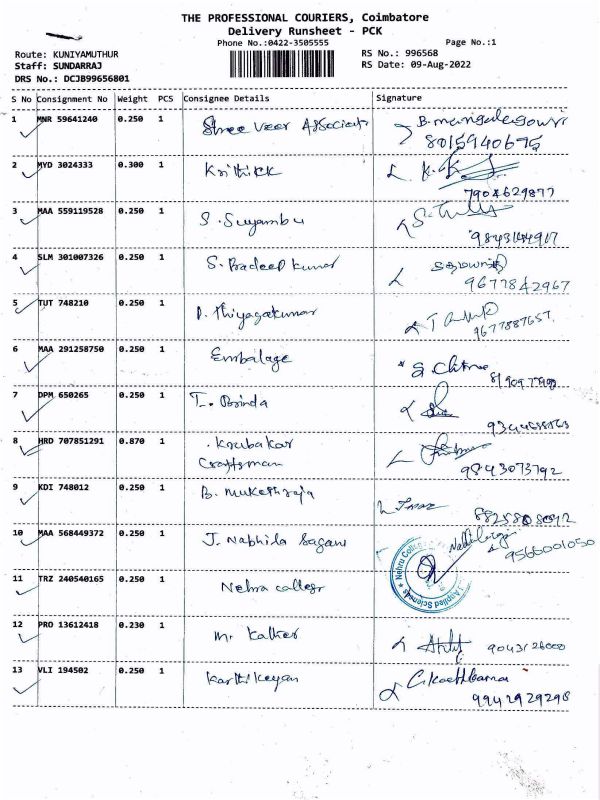 THE PROFESSIONAL COURIERS, Coimbatore
Delivery Runsheet - PCK
Phone No.:0422-3505555
Page No.:1
Route: KUNIYAMUTHUR
RS No.: 996568
Staff: SUNDARRAJ
RS Date: 09-Aug-2022
DRS No.: DCJB99656801
S No Consignment No Weight PCS Consignee Details Signature
1 MNR 59641240 0.250 1 Shree Veer Associats B. mangalagowri
8015940675
2 MYD 3024333 0.300 1 Krithikk K.K
7904629877
3 MAA 559119528 0.250 1 S. Suyambu
9843144917
4 SLM 301007326 0.250 1 S. Pradeep kumar
9677842967
5 TUT 748210 0.250 1 P. Thiyagakumar
9677887657
6 MAA 291258750 0.250 1 Embalage
7 DPM 650265 0.250 1 T. Brinda
8 HRD 707851291 0.870 1 Krubakar
Craftsman
9843073792
9 KDI 748012 0.250 1 B. Mukethraja
10 MAA 568449372 0.250 1 J. Nabhila Sagani
9566001050
Nehru College
Applied Sciences
11 TRZ 240540165 0.250 1 Nehru college
12 PRO 13612418 0.230 1 Mr. Kather
9043126000
13 VLI 194502 0.250 1 Karthikeyan
9942929298